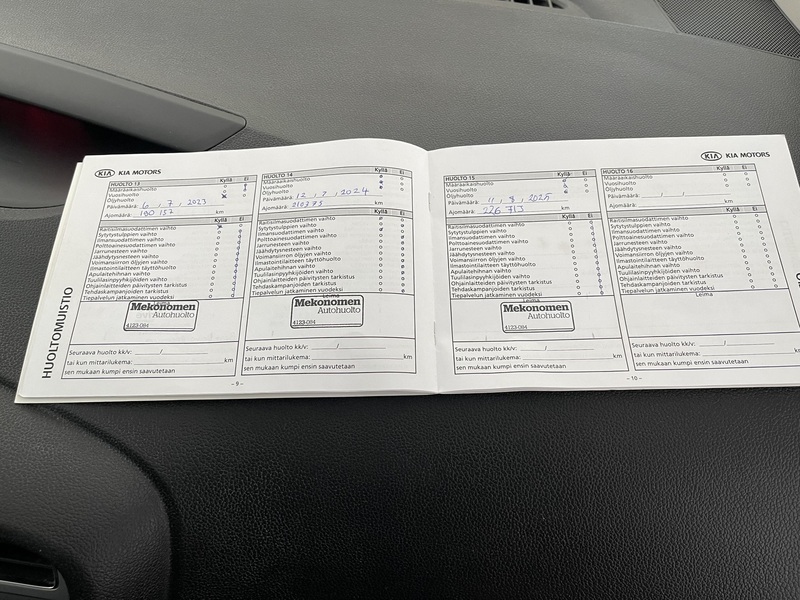 HUOLTOMUISTIO
KIA KIA MOTORS
HUOLTO 13 Kyllä Ei
Määräaikaishuolto
Vuosihuolto
Öljyhuolto
Päivämäärä: 6 , 7 , 2023
Ajomäärä: 190 157 km
Kyllä Ei
Raitisilmasuodattimen vaihto
Sytytystulppien vaihto
Ilmansuodattimen vaihto
Polttoainesuodattimen vaihto
Jarrunesteen vaihto
Jäähdytysnesteen vaihto
Voimansiirron öljyjen vaihto
Ilmastointilaitteen täyttöhuolto
Apulaitehihnan vaihto
Tuulilasinpyyhkijöiden vaihto
Ohjainlaitteiden päivitysten tarkistus
Tehdaskampanjoiden tarkistus
Tiepalvelun jatkaminen vuodeksi
Mekonomen
Autohuolto
4123-084
Seuraava huolto kk/v: /
tai kun mittarilukema: km
sen mukaan kumpi ensin saavutetaan
– 9 –
HUOLTO 14 Kyllä Ei
Määräaikaishuolto
Vuosihuolto
Öljyhuolto
Päivämäärä: 12 , 7 , 2024
Ajomäärä: 210773 km
Kyllä Ei
Raitisilmasuodattimen vaihto
Sytytystulppien vaihto
Ilmansuodattimen vaihto
Polttoainesuodattimen vaihto
Jarrunesteen vaihto
Jäähdytysnesteen vaihto
Voimansiirron öljyjen vaihto
Ilmastointilaitteen täyttöhuolto
Apulaitehihnan vaihto
Tuulilasinpyyhkijöiden vaihto
Ohjainlaitteiden päivitysten tarkistus
Tehdaskampanjoiden tarkistus
Tiepalvelun jatkaminen vuodeksi
Leima
Mekonomen
Autohuolto
4123-084
Seuraava huolto kk/v: /
tai kun mittarilukema: km
sen mukaan kumpi ensin saavutetaan
KIA KIA MOTORS
HUOLTO 15 Kyllä Ei
Määräaikaishuolto
Vuosihuolto
Öljyhuolto
Päivämäärä: 11 , 8 , 2025
Ajomäärä: 226.713 km
Kyllä Ei
Raitisilmasuodattimen vaihto
Sytytystulppien vaihto
Ilmansuodattimen vaihto
Polttoainesuodattimen vaihto
Jarrunesteen vaihto
Jäähdytysnesteen vaihto
Voimansiirron öljyjen vaihto
Ilmastointilaitteen täyttöhuolto
Apulaitehihnan vaihto
Tuulilasinpyyhkijöiden vaihto
Ohjainlaitteiden päivitysten tarkistus
Tehdaskampanjoiden tarkistus
Tiepalvelun jatkaminen vuodeksi
Mekonomen
Autohuolto
4123-084
Seuraava huolto kk/v: /
tai kun mittarilukema: km
sen mukaan kumpi ensin saavutetaan
– 10 –
HUOLTO 16 Kyllä Ei
Määräaikaishuolto
Vuosihuolto
Öljyhuolto
Päivämäärä: / /
Ajomäärä: km
Kyllä Ei
Raitisilmasuodattimen vaihto
Sytytystulppien vaihto
Ilmansuodattimen vaihto
Polttoainesuodattimen vaihto
Jarrunesteen vaihto
Jäähdytysnesteen vaihto
Voimansiirron öljyjen vaihto
Ilmastointilaitteen täyttöhuolto
Apulaitehihnan vaihto
Tuulilasinpyyhkijöiden vaihto
Ohjainlaitteiden päivitysten tarkistus
Tehdaskampanjoiden tarkistus
Tiepalvelun jatkaminen vuodeksi
Leima
Seuraava huolto kk/v: /
tai kun mittarilukema: km
sen mukaan kumpi ensin saavutetaan